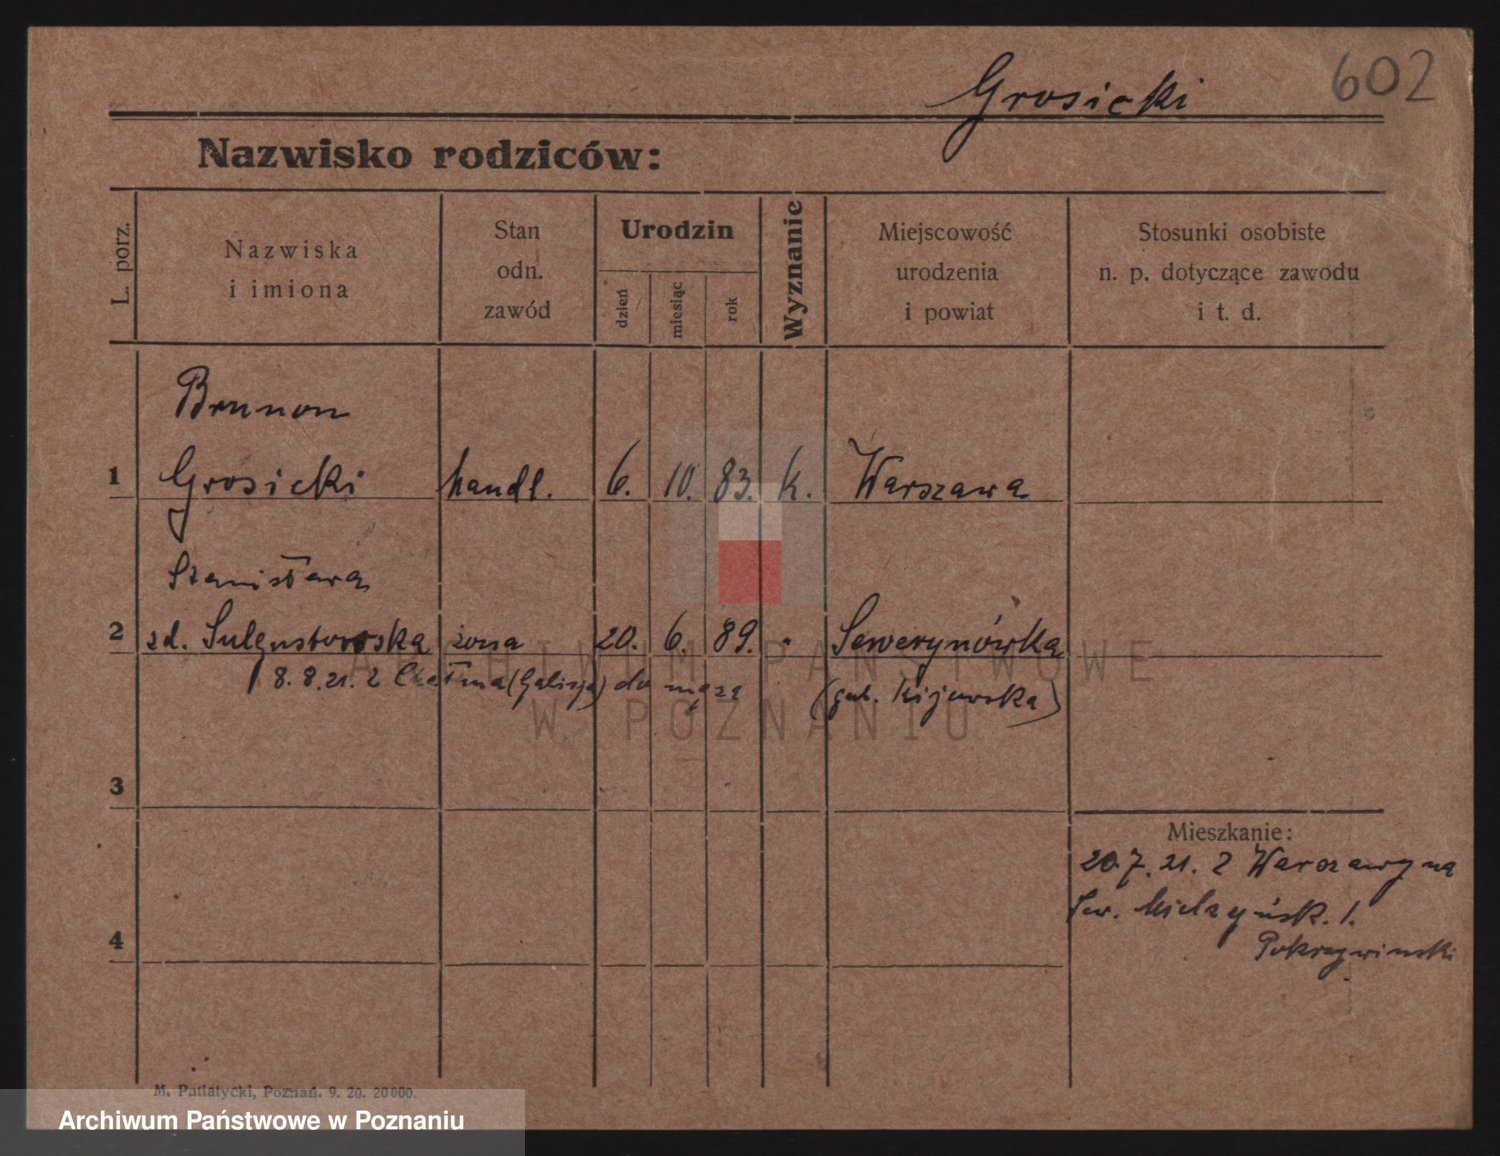 602
Grosicki
Nazwisko rodziców:
L. porz.
Nazwiska
i imiona
Stan
odn.
zawód
Urodzin
dzień
miesiąc
rok
Wyznanie
Miejscowość
urodzenia
i powiat
Stosunki osobiste
n. p. dotyczące zawodu
i t. d.
Brunon
1 Grosicki handl. 6. 10. 83. k. Warszawa
Stanisława
2 zd. Sulgustowska żona 20. 6. 89. " Sewerynówka
8.8.21. z (Galizja) do męża (gub. Kijowska)
3
Mieszkanie:
20.7.21. z Warszawy na
Sew. Mielżyńsk. 1.
4
Pokrzywinski
M. Putiatycki, Poznań. 9. 20. 20000.
ARCHIWUM PAŃSTWOWE
W POZNANIU
Archiwum Państwowe w Poznaniu